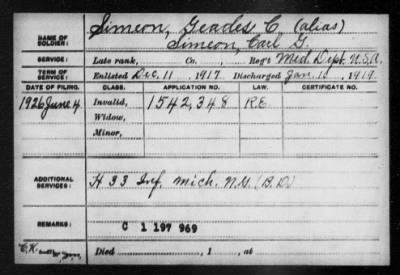 Simeon, Geades C. (alias)
NAME OF SOLDIER: Simeon, Carl G.
SERVICE: Late rank, Co. , Reg't Med. Dept. U.S.A.
TERM OF SERVICE: Enlisted Dec. 11, 1917. Discharged Jan. 1 , 1919.
DATE OF FILING. CLASS. APPLICATION NO. LAW. CERTIFICATE NO.
1926 June 4 Invalid, 1542,348 R.E.
Widow,
Minor,
ADDITIONAL SERVICES: H 33 Inf. Mich. N.G. (B.D.)
REMARKS: C 1 197 969
Died , 1 , at